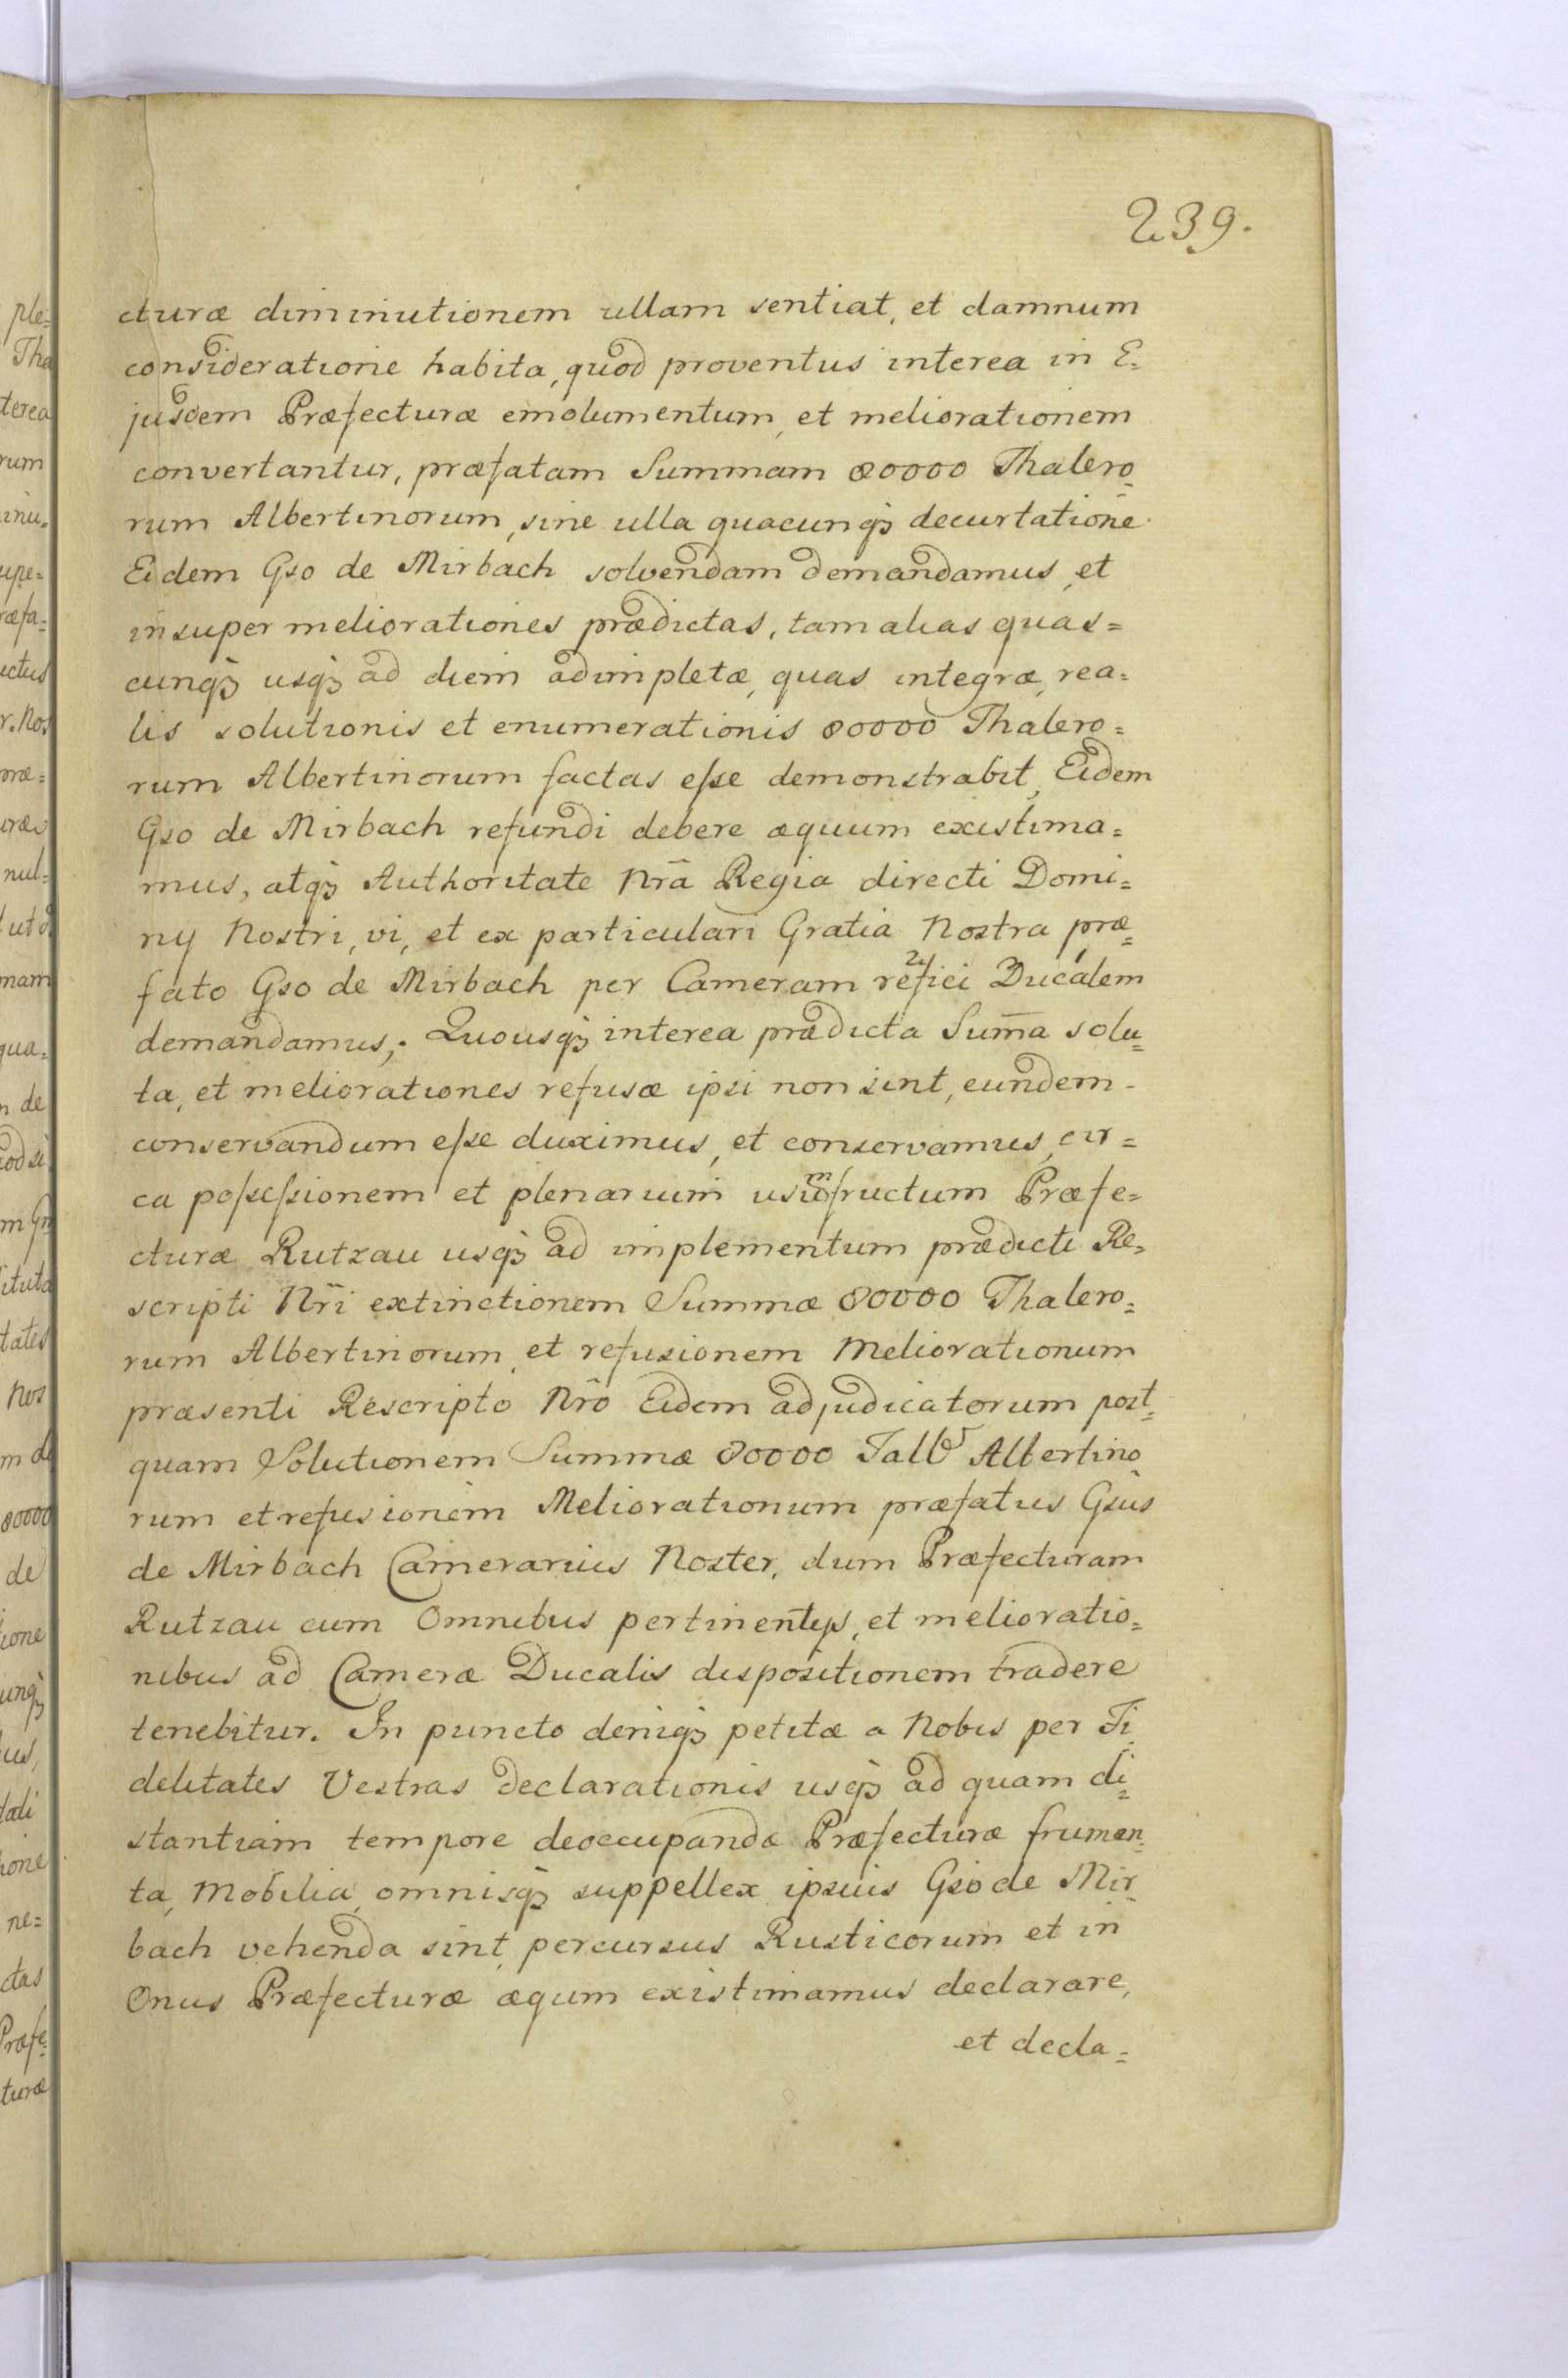 239.
cturæ diminutionem ullam sentiat, et damnum
consideratione habita, quod proventus interea in E=
jusdem Præfecturæ emolumentum, et meliorationem
convertantur, præfatam Summam 80000 Thalero=
rum Albertinorum, sine ulla quacunqꝫ decurtatione
Eidem Gso de Mirbach solvendam demandamus, et
insuper meliorationes prædictas, tam alias quas=
cunqꝫ usqꝫ ad diem adimpletæ, quas integræ, rea=
lis solutionis et enumerationis 80000 Thalero=
rum Albertinorum factas esse demonstrabit, Eidem
Gso de Mirbach refundi debere æquum existima=
mus, atqꝫ Authoritate Nrã Regia directi Domi=
nij Nostri, vi, et ex particulari Gratia Nostra præ=
fato Gso de Mirbach per Cameram refici Ducalem
demandamus; Quousqꝫ interea prædicta Sum̃a solu=
ta, et meliorationes refusæ ipsi non sint, eundem
conservandum esse duximus, et conservamus, cir=
ca possessionem et plenarium usumfructum Præfe=
cturæ Rutzau usqꝫ ad implementum prædicti Re=
scripti Nrĩ extinctionem Summæ 80000 Thalero=
rum Albertinorum, et refusionem Meliorationum
præsenti Rescripto Nrõ Eidem adjudicatorum post=
quam Solutionem Summæ 80000 Tallr Albertino
rum et refusionem Meliorationum præfatus Gsus
de Mirbach Camerarius Noster, dum Præfecturam
Rutzau cum Omnibus pertinentijs, et melioratio=
nibus ad Cameræ Ducalis dispositionem tradere
tenebitur. In puncto deniqꝫ petitæ a Nobis per Fi
delitates Vestras declarationis usqꝫ ad quam di=
stantiam tempore deoccupandæ Præfecturæ frumen
ta, Mobilia, omnisqꝫ suppellex ipsius Gso de Mir
bach vehenda sint, percursus Rusticorum et in
Onus Præfecturæ æqum existimamus declarare,
et decla=